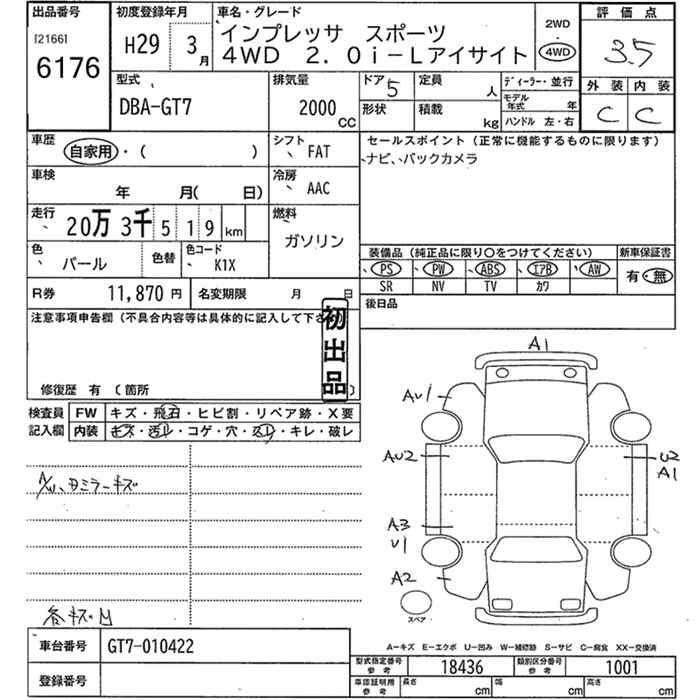 出品番号 初度登録年月 車名・グレード 2WD 評価点
[2166] H29 3月 インプレッサ スポーツ 4WD 3.5
6176 4WD 2.0i-Lアイサイト 外装 内装
型式 排気量 ドア 5 定員 人 ディーラー・並行 C C
DBA-GT7 2000 CC 形状 積載 kg モデル年式 年
ハンドル 左・右
車歴 シフト セールスポイント (正常に機能するものに限ります)
自家用・( ) FAT ナビ、バックカメラ
車検 冷房
年 月( 日) AAC
走行 燃料
20万3千519km ガソリン
色 色替 色コード 装備品 (純正品に限り○をつけてください) 新車保証書
パール K1X PS PW ABS エアB AW 有・無
SR NV TV カワ
R券 11,870円 名変期限 月 日 後日品
注意事項申告欄 (不具合内容等は具体的に記入して下さ
初出品
修復歴 有 (箇所 )
検査員 FW キズ・飛石・ヒビ割・リペア跡・X要
記入欄 内装 キズ・汚レ・コゲ・穴・スレ・キレ・破レ
A1
AU1
AU2
A1
A/U、タミラーキズ
A3
U1
A2
スペア
各キズ凹
A=キズ E=エクボ U=凹み W=補修跡 S=サビ C=腐食 XX=交換済
車台番号 GT7-010422
型式指定番号 参考 18436 類別区分番号 参考 1001
登録番号 車庫証明用 参考 長さ cm 幅 cm 高さ cm